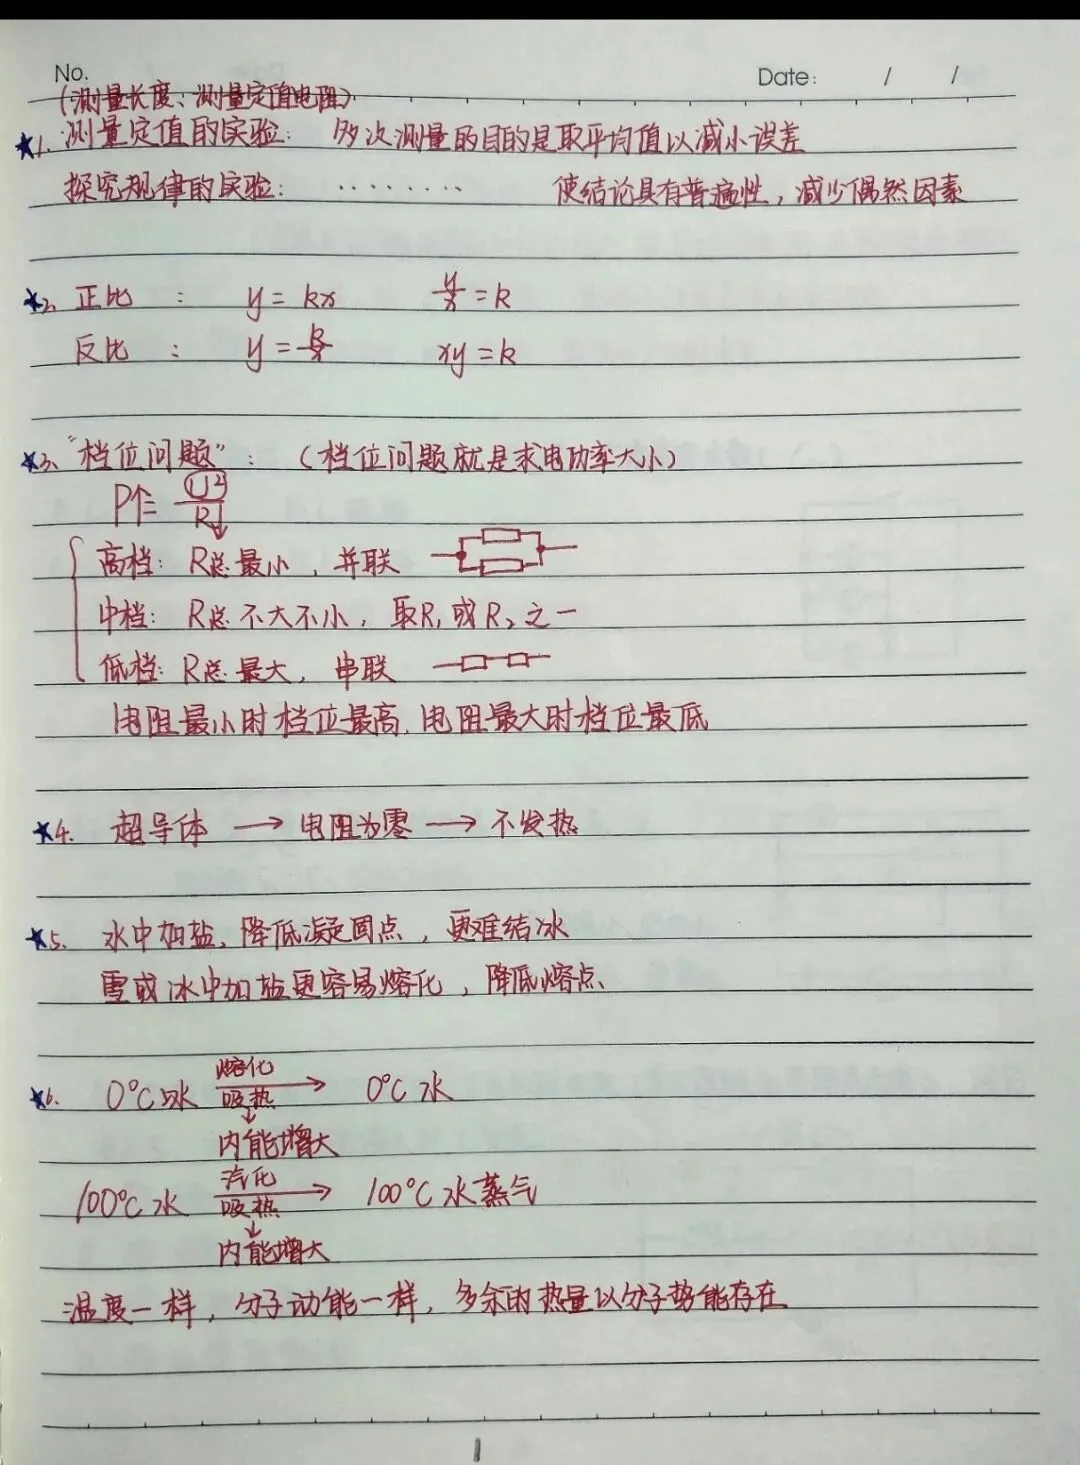 No.
Date: / /
(测量长度、测量定值电阻)
★1. 测量定值的实验: 多次测量的目的是取平均值以减小误差
探究规律的实验: ········ 使结论具有普遍性,减少偶然因素
★2. 正比 : y = kx y/x = k
反比 : y = k/x xy = k
★3. "档位问题": (档位问题就是求电功率大小)
P↑= U²/R↓
高档: R总最小,并联
中档: R总不大不小,取R₁或R₂之一
低档: R总最大,串联
电阻最小时档位最高,电阻最大时档位最低
★4. 超导体 → 电阻为零 → 不发热
★5. 水中加盐,降低凝固点,更难结冰
雪或冰中加盐更容易熔化,降低熔点、
熔化
★6. 0°C冰 → 0°C水
吸热
↓
内能增大
汽化
100°C水 → 100°C水蒸气
吸热
↓
内能增大
温度一样,分子动能一样,多余的热量以分子势能存在
1